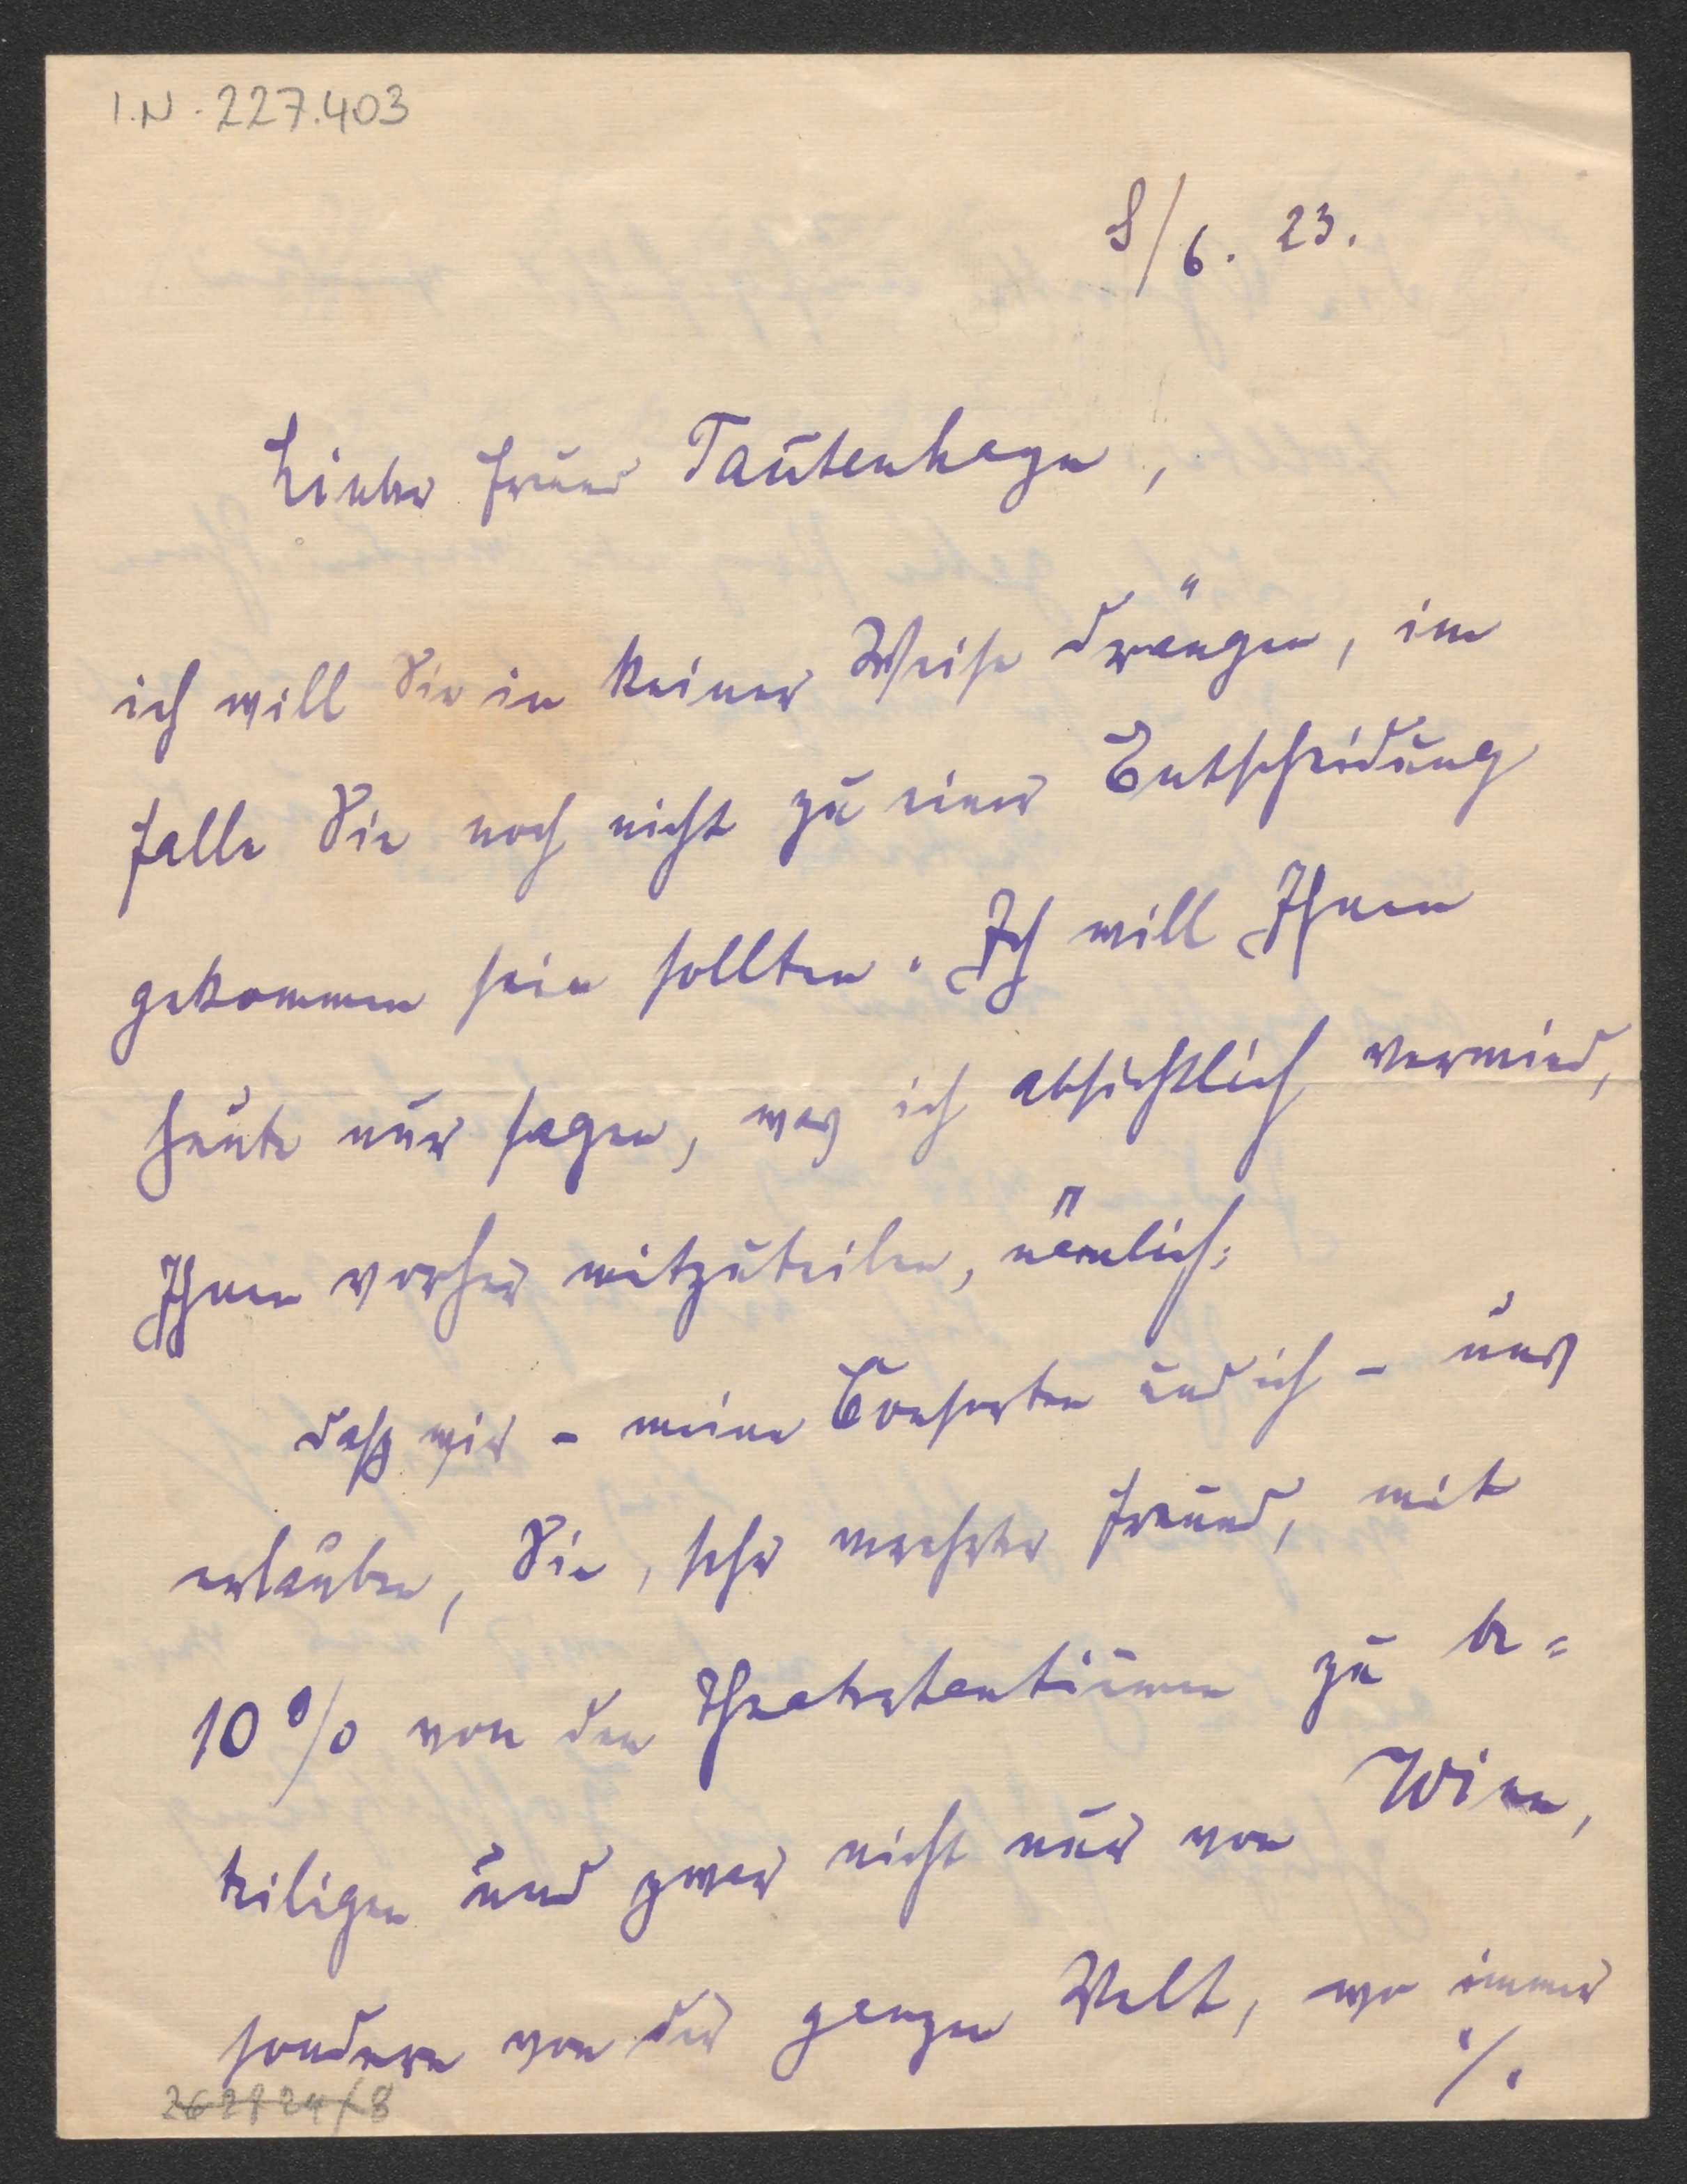 I.N. 227.403
8/6. 23.
Lieber Freund Tautenhayn,
ich will Sie in keiner Weise drängen, im
Falle Sie noch nicht zu einer Entscheidung
gekommen sein sollten. Ich will Ihnen
heute nur sagen, was ich absichtlich vermied,
Ihnen vorher mitzuteilen, nämlich:
daß wir - meine Consorten und ich - uns
erlauben, Sie, sehr verehrter Freund, mit
10% von den Theatertantiemen zu be=
teiligen und zwar nicht nur von Wien,
sondern von der ganzen Welt, wo immer
./.